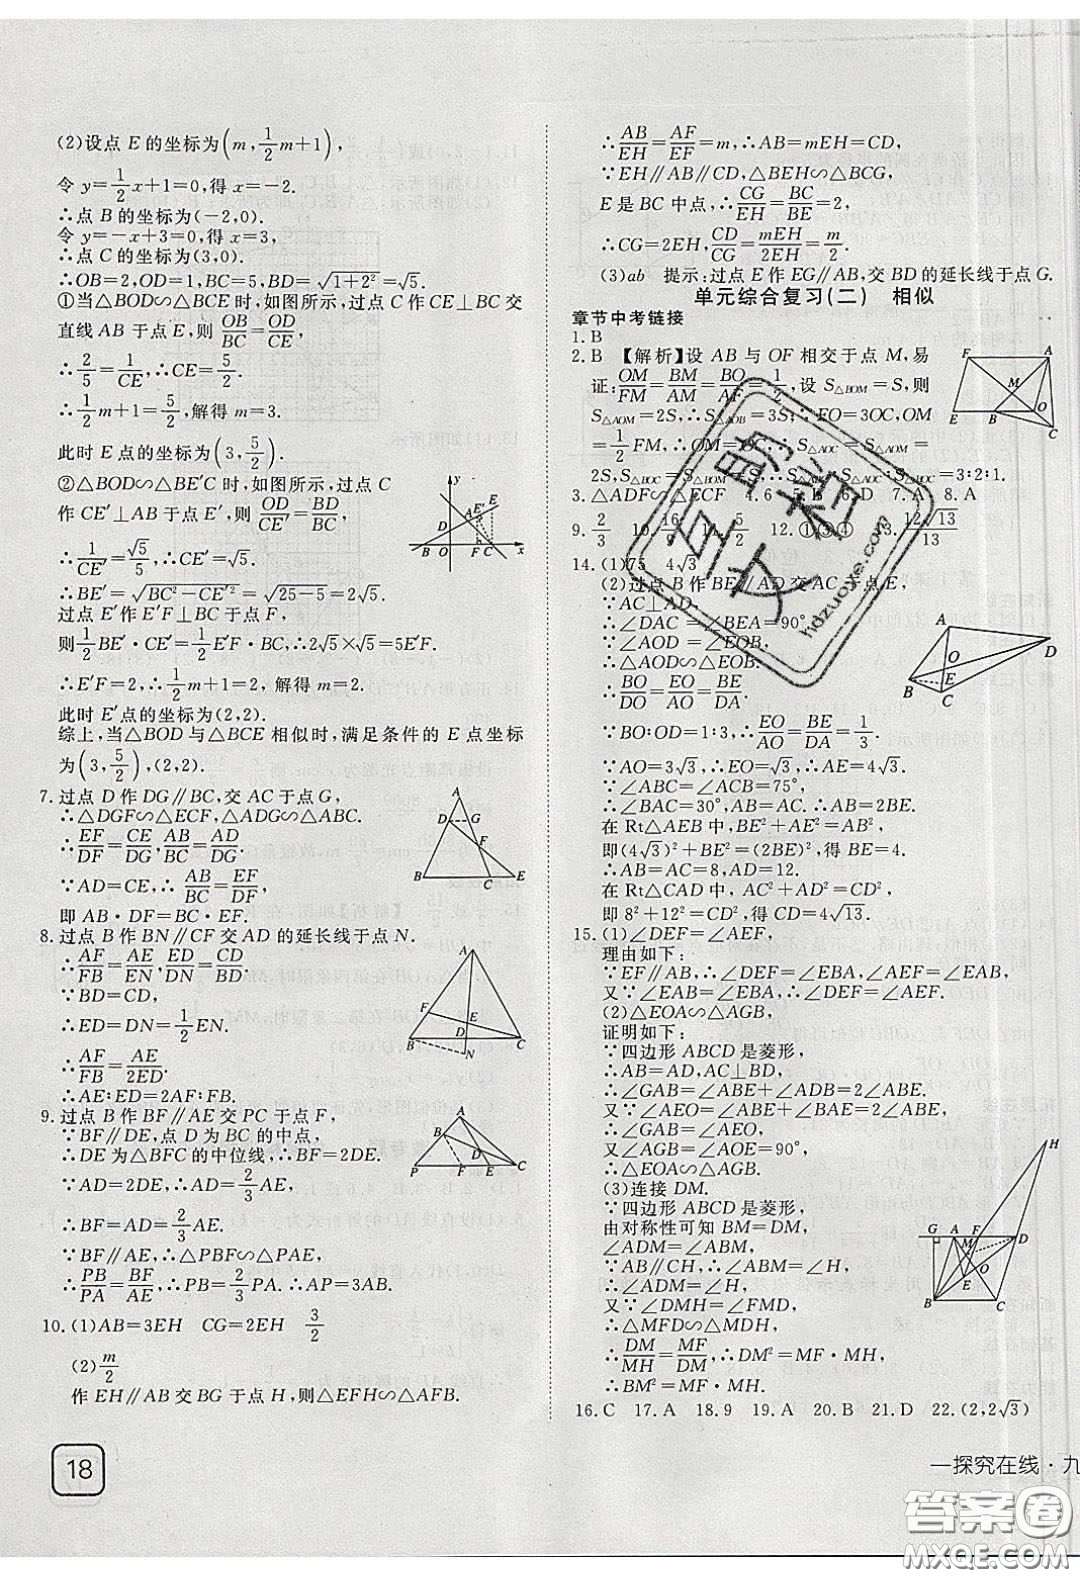 (2)设点 E 的坐标为(m, 1/2 m+1),
令 y=1/2 x+1=0,得 x=-2.
∴点 B 的坐标为(-2,0).
令 y=-x+3=0,得 x=3,
∴点 C 的坐标为(3,0).
∴OB=2,OD=1,BC=5,BD=√(1+2²)=√5.
①当△BOD∽△BCE 时,如图所示,过点 C 作 CE⊥BC 交
直线 AB 于点 E,则 OB/BC=OD/CE,
∴2/5=1/CE,∴CE=5/2.
∴1/2 m+1=5/2,解得 m=3.
此时 E 点的坐标为(3, 5/2).
②△BOD∽△BE′C 时,如图所示,过点 C
作 CE′⊥AB 于点 E′,则 OD/CE′=BD/BC,
∴1/CE′=√5/5,∴CE′=√5.
∴BE′=√(BC²-CE′²)=√(25-5)=2√5.
过点 E′作 E′F⊥BC 于点 F,
则1/2 BE′·CE′=1/2 E′F·BC,∴2√5×√5=5E′F.
∴E′F=2,∴1/2 m+1=2,解得 m=2.
此时 E′点的坐标为(2,2).
综上,当△BOD 与△BCE 相似时,满足条件的 E 点坐标
为(3, 5/2),(2,2).
7.过点 D 作 DG∥BC,交 AC 于点 G,
∴△DGF∽△ECF,△ADG∽△ABC.
∴EF/DF=CE/DG,AB/BC=AD/DG.
∵AD=CE,∴AB/BC=EF/DF,
即 AB·DF=BC·EF.
8.过点 B 作 BN∥CF 交 AD 的延长线于点 N.
∴AF/FB=AE/EN,ED/DN=CD/BD.
∵BD=CD,
∴ED=DN=1/2 EN.
∴AF/FB=AE/2ED.
∴AE:ED=2AF:FB.
9.过点 B 作 BF∥AE 交 PC 于点 F,
∵BF∥DE,点 D 为 BC 的中点,
∴DE 为△BFC 的中位线,∴BF=2DE.
∵AD=2DE,∴AD=2/3 AE,
∴BF=AD=2/3 AE.
∵BF∥AE,∴△PBF∽△PAE,
∴PB/PA=BF/AE,∴PB=2/3 PA.∴AP=3AB.
10.(1)AB=3EH CG=2EH 3/2
(2)m/2
作 EH∥AB 交 BG 于点 H,则△EFH∽△AFB.
18
∴AB/EH=AF/EF=m,∴AB=mEH=CD,
∵EH∥AB∥CD,△BEH∽△BCG,
E 是 BC 中点,∴CG/EH=BC/BE=2,
∴CG=2EH,CD/CG=mEH/2EH=m/2.
(3)ab 提示:过点 E 作 EG∥AB,交 BD 的延长线于点 G.
单元综合复习(二) 相似
章节中考链接
1.B
2.B 【解析】设 AB 与 OF 相交于点 M,易
证:OM/FM=BM/AM=BO/AF=1/2,设 S△BOM=S,则
S△AOM=2S,∴S△AOB=3S;∵EO=3OC,OM
=1/2 FM,∴OM=OC∴S△AOC=S△AOM=
2S,S△ABC S△BOM=3:2:1.
3.△ADF∽△ECF 4.6 5.B 6.D 7.A 8.A
9.2/3 10.16/9 11.5/2 12.①③④ 13.12√13/13
14.(1)75 4√3
(2)过点 B 作 BE∥AD 交 AC 于点 E,
∵AC⊥AD,
∴∠DAC=∠BEA=90°.
∵∠AOD=∠EOB,
∴△AOD∽△EOB.
∴BO/DO=EO/AO=BE/DA.
∵BO:OD=1:3,∴EO/AO=BE/DA=1/3.
∵AO=3√3,∴EO=√3,∴AE=4√3.
∵∠ABC=∠ACB=75°,
∴∠BAC=30°,AB=AC,∴AB=2BE.
在 Rt△AEB 中,BE²+AE²=AB²,
即(4√3)²+BE²=(2BE)²,得 BE=4.
∴AB=AC=8,AD=12.
在 Rt△CAD 中,AC²+AD²=CD²,
即 8²+12²=CD²,得 CD=4√13.
15.(1)∠DEF=∠AEF,
理由如下:
∵EF∥AB,∴∠DEF=∠EBA,∠AEF=∠EAB,
又∵∠EAB=∠EBA,∴∠DEF=∠AEF.
(2)△EOA∽△AGB,
证明如下:
∵四边形 ABCD 是菱形,
∴AB=AD,AC⊥BD,
∴∠GAB=∠ABE+∠ADB=2∠ABE,
又∵∠AEO=∠ABE+∠BAE=2∠ABE,
∴∠GAB=∠AEO.
又∠AGB=∠AOE=90°,
∴△EOA∽△AGB.
(3)连接 DM.
∵四边形 ABCD 是菱形,
由对称性可知 BM=DM,
∠ADM=∠ABM,
∵AB∥CH,∴∠ABM=∠H,
∴∠ADM=∠H,
又∵∠DMH=∠FMD,
∴△MFD∽△MDH,
∴DM/MH=MF/DM,∴DM²=MF·MH,
∴BM²=MF·MH.
16.C 17.A 18.9 19.A 20.B 21.D 22.(2,2√3)
一探究在线·九
答案圈
MXQE.COM
互助文档
hdzuoye.com